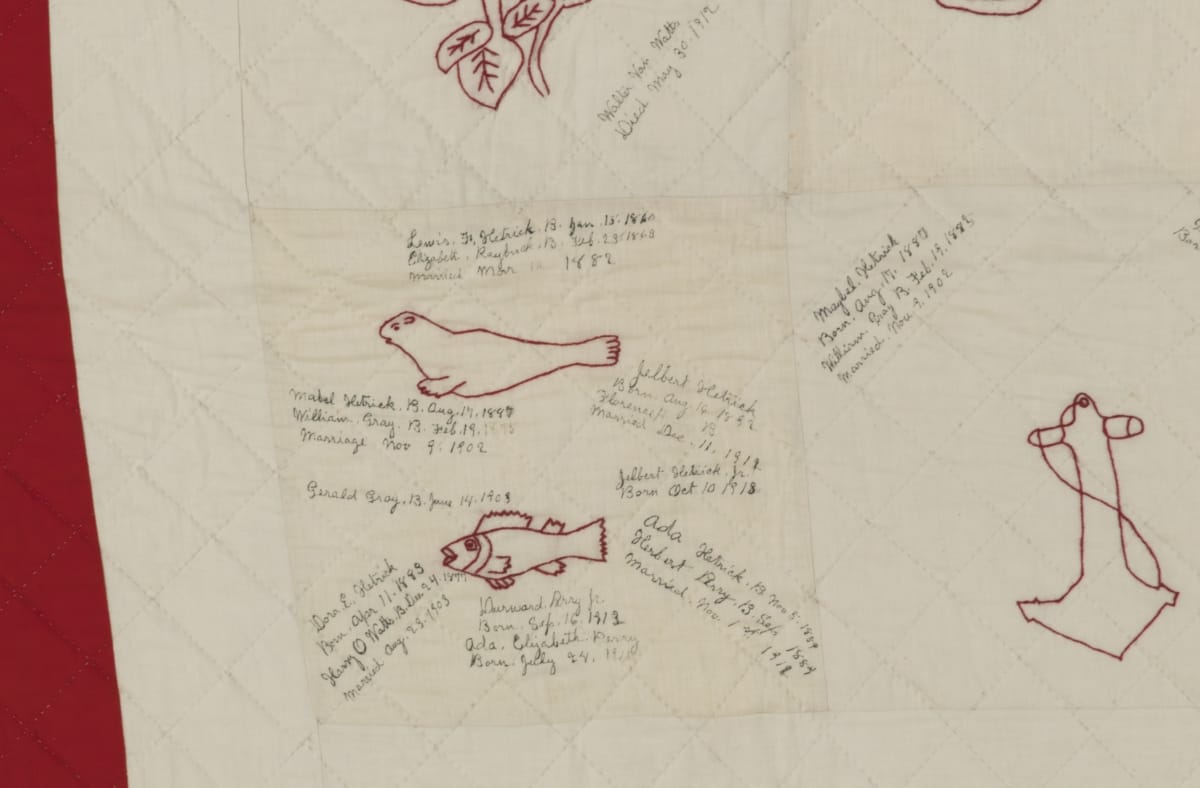 Walter Van Watts
Died May 30. 1912
Lewis. H. Hetrick. B. Jan. 15. 1860
Elizabeth. Raybuck. B. Feb. 23. 1863
Married Mar 1882
Maybel. Hetrick
Born. Aug. 17. 1887
William. Gray B. Feb. 19. 1883
Married. Nov. 9. 1902
Mabel Hetrick. B. Aug. 17. 1887
William. Gray. B. Feb. 19.
Marriage Nov 9. 1902
Jelbert Hetrick
Born. Aug 16. 1892
Florence B
Married Dec. 11. 1912
Gerald Gray. B. June 14. 1903
Jelbert Hetrick. Jr.
Born Oct 10 1918
Dora. E. Hetrick
Born. Apr. 11. 1883
Harry O Watts. B. Dec 24. 1877
Married Aug. 23. 1903
Durward. Perry Jr.
Born. Sep. 16 1913
Ada. Elizabeth. Perry
Born. July 24.
Ada Hetrick. B. Nov 5. 1889
Herbert Perry. B. Sep. 1889
Married. Nov. 1912